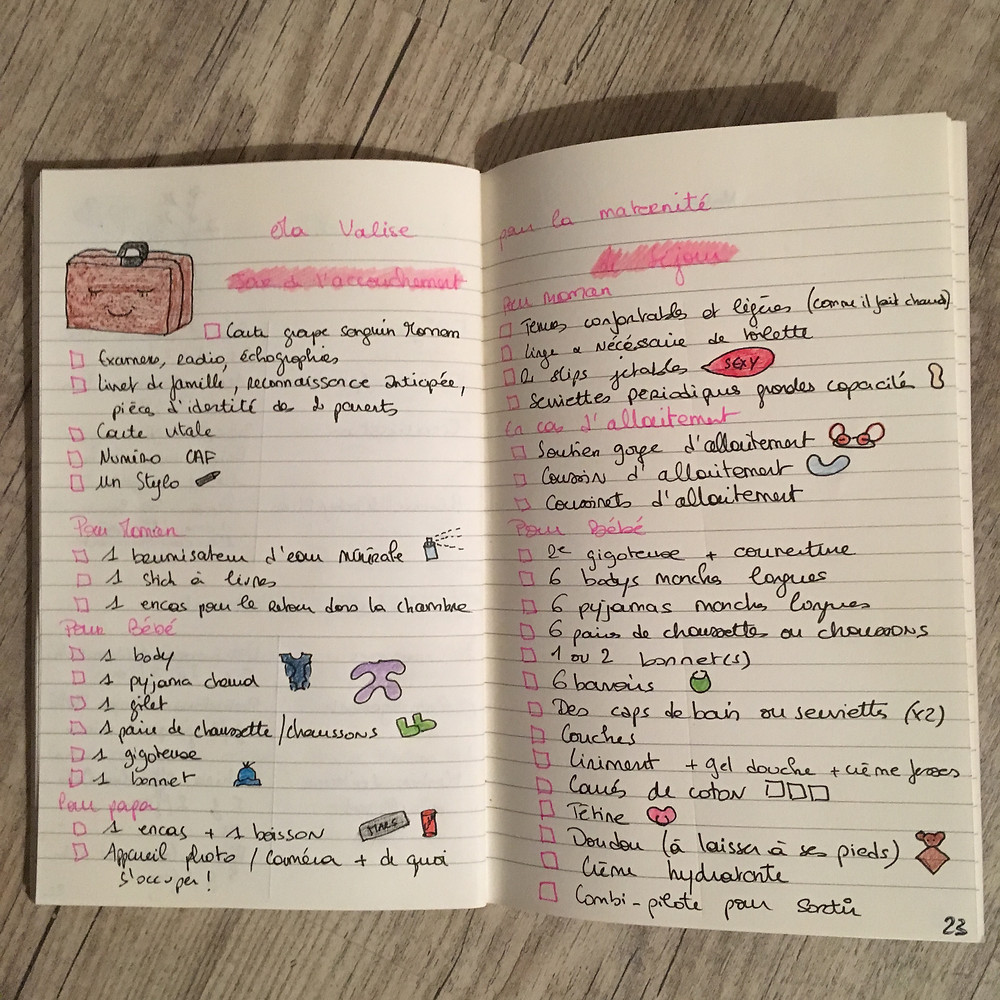 Ma Valise
Sac de l'accouchement
Carte groupe sanguin Maman
Examens, radio, échographies
Livret de famille, reconnaissance anticipée,
pièce d'identité des 2 parents
Carte vitale
Numéro CAF
un Stylo
Pour Maman
1 brumisateur d'eau minérale
1 stick à lèvres
1 encas pour le retour dans la chambre
Pour Bébé
1 body
1 pyjama chaud
1 gilet
1 paire de chaussette / chaussons
1 gigoteuse
1 bonnet
Pour papa
1 encas + 1 boisson
MARS
Appareil photo / caméra + de quoi
s'occuper !
pour la maternité
Le Séjour
Pour maman
Tenues confortables et légères (comme il fait chaud)
linge & Nécéssaire de toilette
2 slips jetables
SEXY
Serviettes periodiques grandes capacité
En cas d'allaitement
Soutien gorge d'allaitement
Coussin d'allaitement
Coussinets d'allaitement
Pour Bébé
2e gigoteuse + couverture
6 bodys manches longues
6 pyjamas manches longues
6 paires de chaussettes ou chaussons
1 ou 2 bonnet(s)
6 bavoirs
Des capes de bain ou serviettes (x2)
Couches
Liniment + gel douche + crème fesses
Carrés de coton
Tétine
Doudou (à laisser à ses pieds)
Crème hydratante
Combi-pilote pour sortir
23